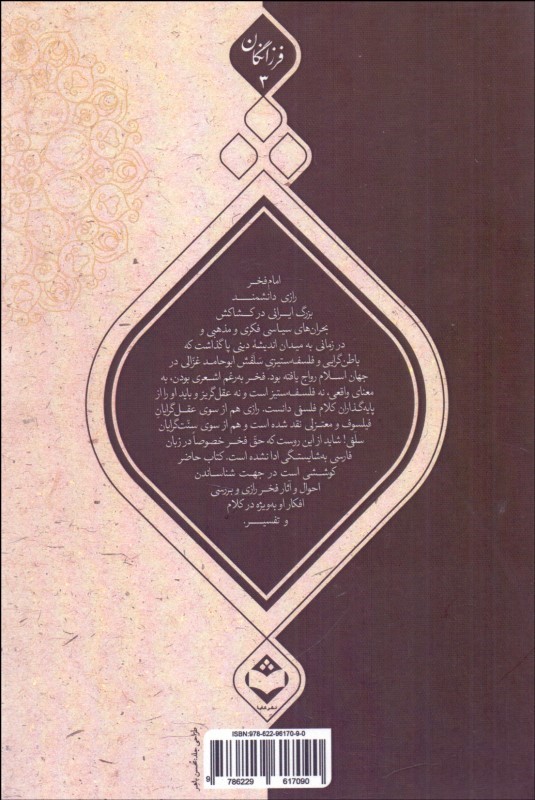 فرزانگان
۳
امام فخر
رازی دانشمند
بزرگ ایرانی در کشاکش
بحران‌های سیاسی فکری و مذهبی و
در زمانی به میدان اندیشهٔ دینی پا گذاشت که
باطن‌گرایی و فلسفه‌ستیزی سَلَفش ابوحامد غزالی در
جهان اسلام رواج یافته بود. فخر به‌رغم اشعری بودن، به
معنای واقعی، نه فلسفه‌ستیز است و نه عقل‌گریز و باید او را از
پایه‌گذاران کلام فلسفی دانست. رازی هم از سوی عقل‌گرایانِ
فیلسوف و معتزلی نقد شده است و هم از سوی سنّت‌گرایان
سلفی! شاید از این روست که حق فخر خصوصاً در زبان
فارسی به‌شایستگی ادا نشده است. کتاب حاضر
کوششی است در جهت شناساندن
احوال و آثار فخر رازی و بررسی
افکار او به‌ویژه در کلام
و تفسیر.
ISBN:978-622-96170-9-0
9 786229 617090